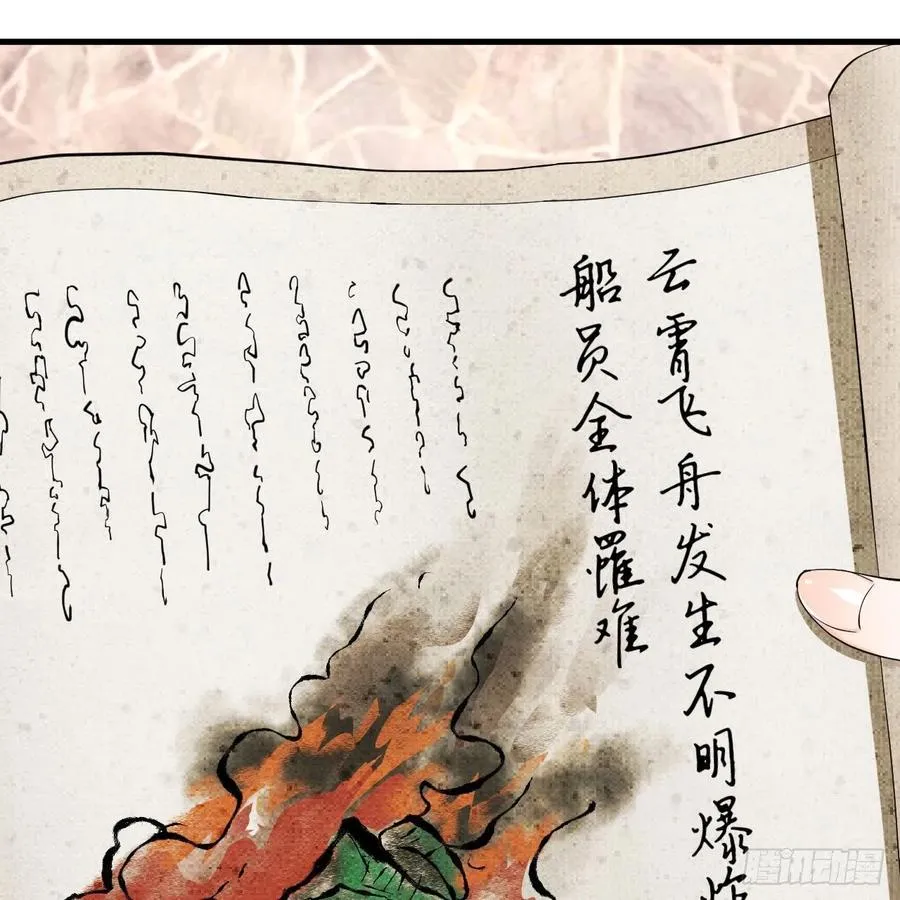 云霄飞舟发生不明爆炸
船员全体罹难
腾讯动漫